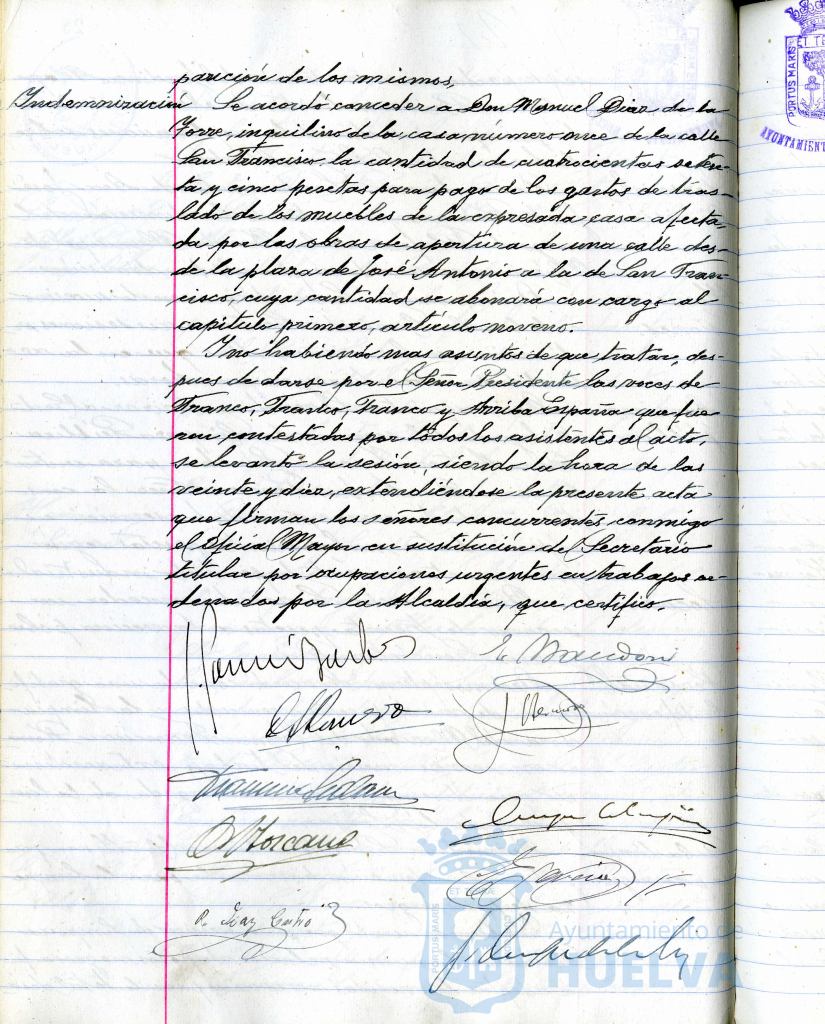 parición de los mismos.
Indemnización Se acordó conceder a Don Manuel Diaz de la
Torre, inquilino de la casa número once de la calle
San Francisco, la cantidad de cuatrocientas seten-
ta y cinco pesetas para pago de los gastos de tras-
lado de los muebles de la expresada casa afecta-
da por las obras de apertura de una calle des-
de la plaza de José Antonio a la de San Fran-
cisco, cuya cantidad se abonará con cargo al
capitulo primero, artículo noveno.
Y no habiendo mas asuntos de que tratar, des-
pues de darse por el Señor Presidente las voces de
Franco, Franco, Franco y Arriba España que fue
ron contestadas por todos los asistentes al acto,
se levantó la sesión, siendo la hora de las
veinte y diez, extendiéndose la presente acta
que firman los señores concurrentes conmigo
el Oficial Mayor en sustitución del Secretario
titular por ocupaciones urgentes en trabajos or-
denados por la Alcaldía, que certifico.
PORTUS MARIS
AYUNTAMIENT
Ayuntamiento de
HUELVA